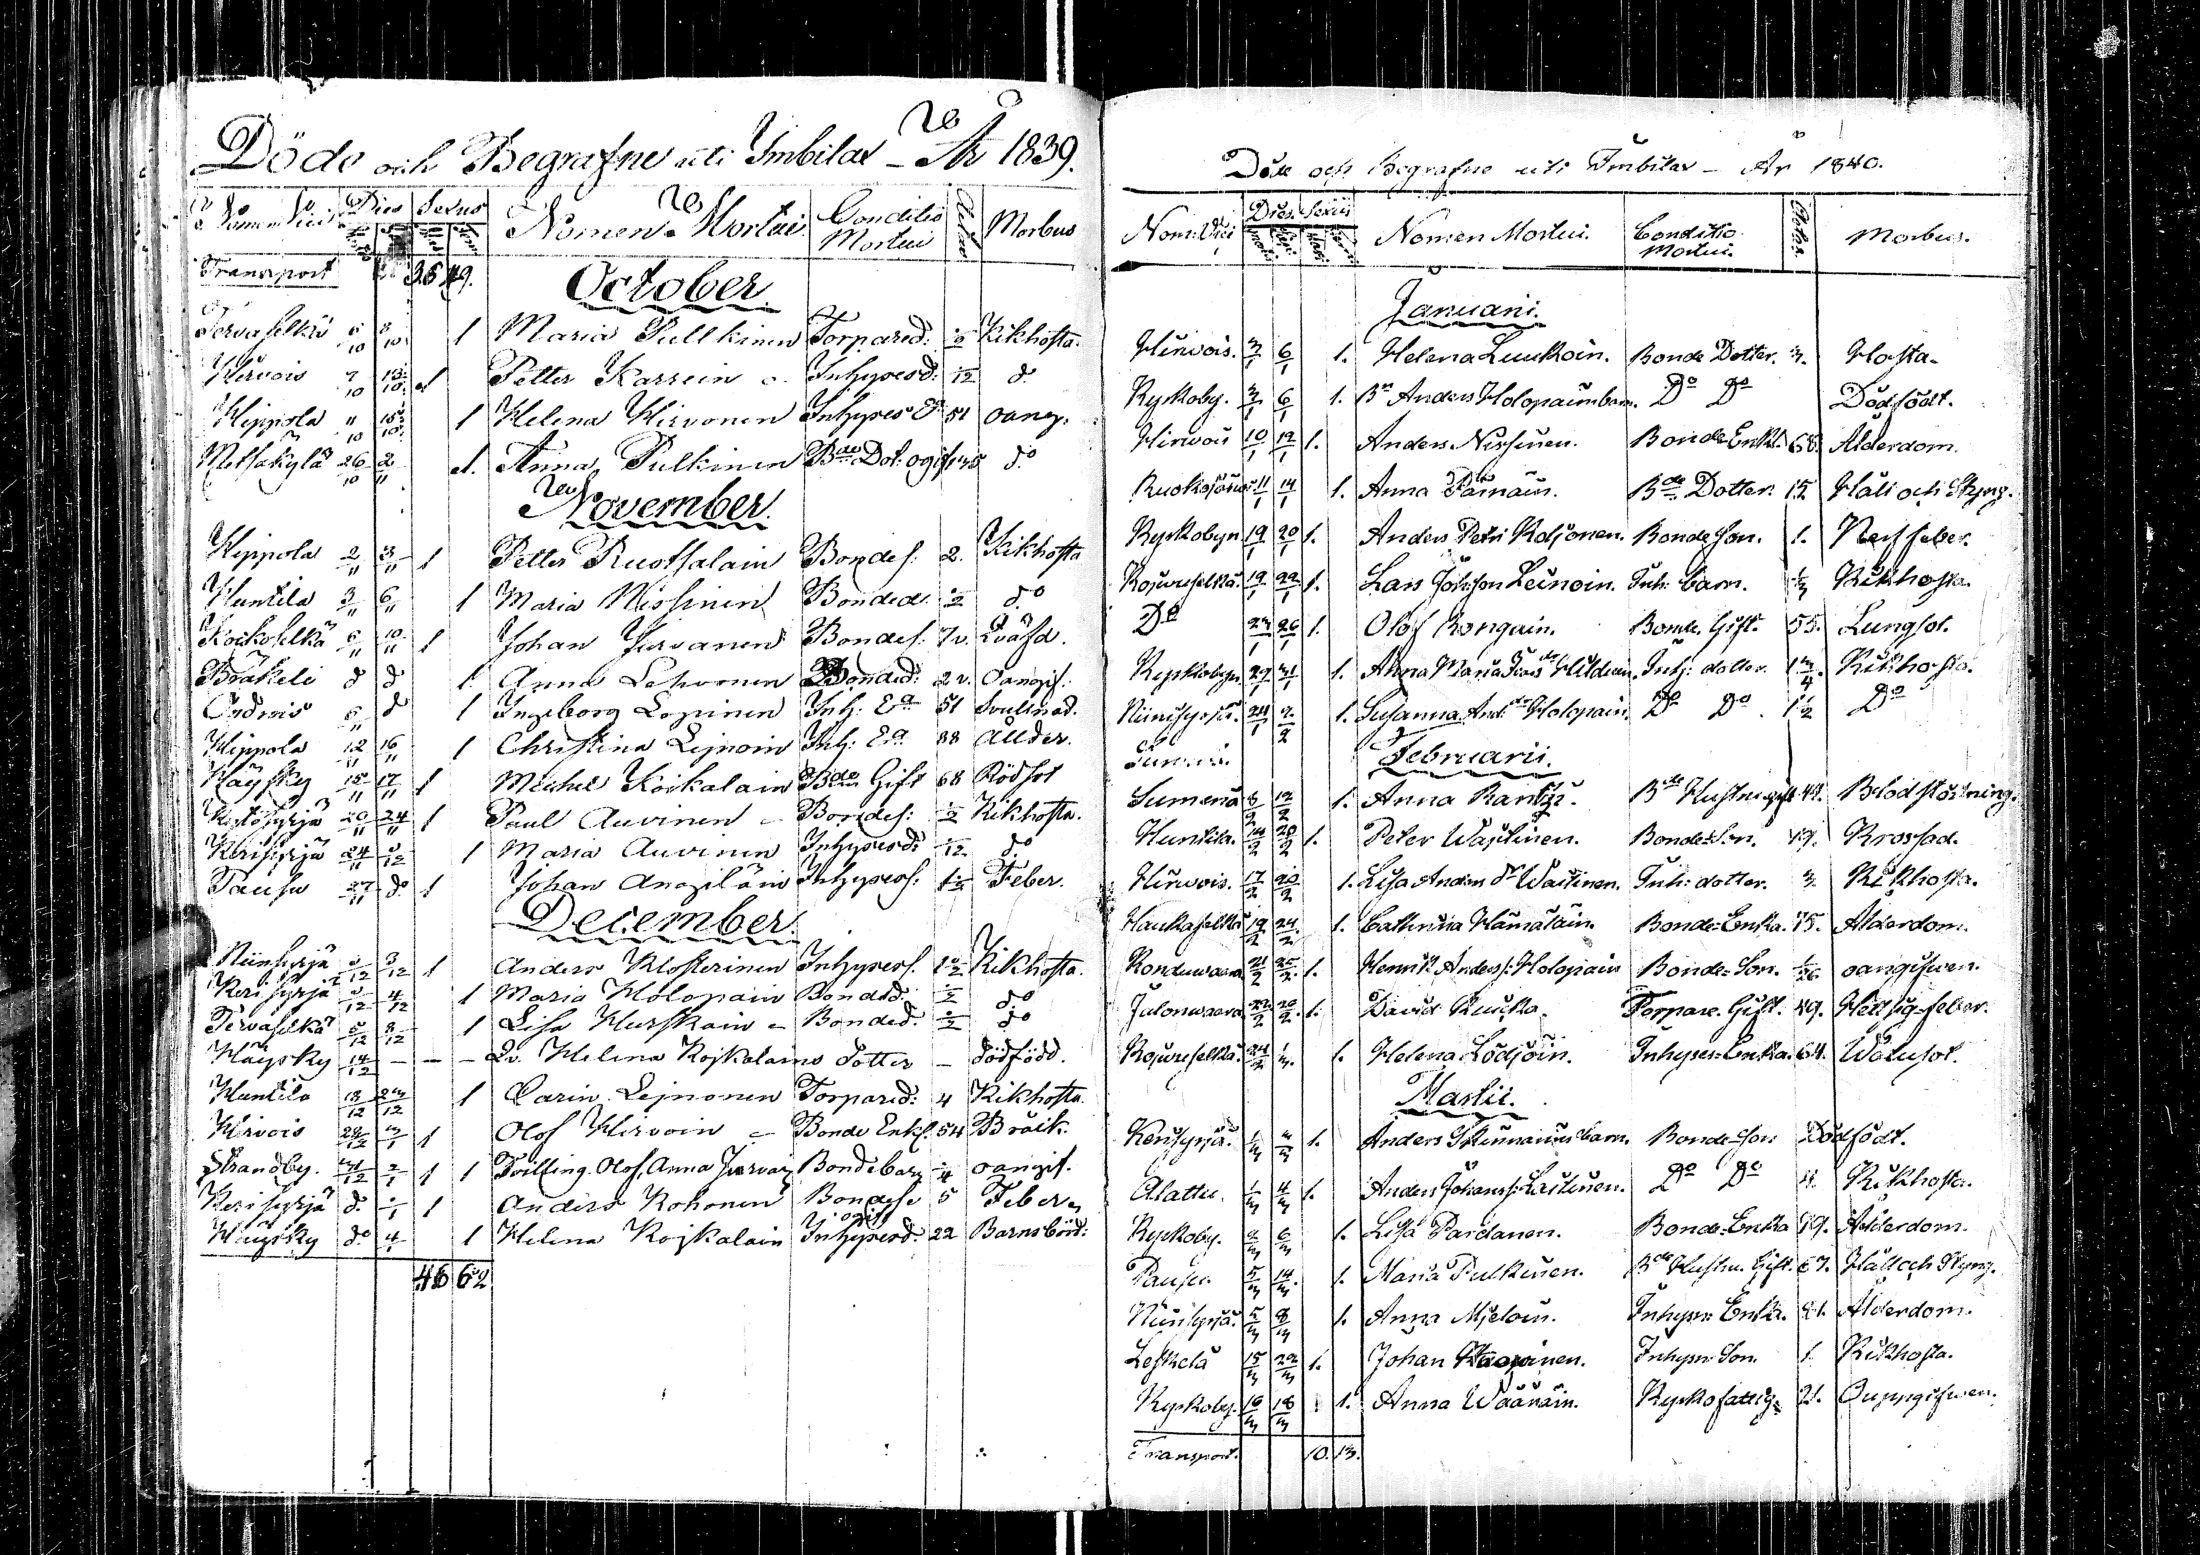 Döde och Begrafne uti Imbilax – År 1839.
Nomen Vici Dies Sexus Nomen Mortui Conditio Mortui Aetas Morbus
Transport 36 49.
October
Tervaselkä 6/10 8/10 1 Maria Pulkinen Torpared: Kikhosta.
Hirvois 7/10 13/10 1 Petter Karsein Inhyresd: 1/12 do
Hippola 11/10 15/10 1 Helena Hirvonen Inhyres Ea 51 oang.
Metsäkylä 26/10 2/11 1. Anna Pulkinen Bde Dot: ogift 35 do
November
Hippola 2/11 3/11 1 Petter Ruotsalain Bondes: 2. Kikhosta
Huntila 3/11 6/11 1 Maria Nissinen Bonded: 1/2 do
Koikoselkä 6/11 10/11 1 Johan Jervanen Bondes: 7 v.
Bråkeli d d 1 Anna Lehvonen Bonded: 2 v. Oangif.
d 1 Ingeborg Loginen Inh: Ea 51 Svulnad.
Hippola 12/11 16/11 1 Christina Lejnoin Inh: Ea 88 Ållder.
Häysky 15/11 17/11 1 Michel Koikalain Bde Gift 68 Rödsot
20/11 24/11 1 Paul Auvinen – Bondes: 1/2 Kikhosta.
Kerisyrjä 24/11 1/12 1 Maria Auvinen Inhyresd: 1/12 do
Pausu 27/11 do 1 Johan Inhyress: 1 1/2 Feber.
December
Niinisyrjä 1/12 3/12 1 Anders Klosterinen Inhyress. 1 1/2 Kikhosta.
Kerisyrjä 1/12 4/12 1 Maria Holopain Bonded: 1/2 do
Tervaselkä 5/12 8/12 1 Lisa Hurskain – Bonded: 1/2 do
Häysky 14/12 – – – Helena Kojkalains Dotter – dödfödd.
Huntila 18/12 23/12 1 Carin Lejnonen Torpared: 4 Kikhosta
Hirvois 29/12 3/1 1 Olof Hirvoin – Bonde Enkl: 54 Bråck.
Strandby. 31/12 2/1 1 1 Tvilling. Olof, Anna Jervan Bondebarn 1/4 oangif.
Kerisyrjä d. 1/1 1 Anders Kohonen Bondese 5 Feber
Häysky do 4/1 1 Helena Kojkalain ogift Inhyresd. 22 Barnsbörd:
46 62
Döde och Begrafne uti Imbilax – År 1840.
Nom: Vici Dies. Sexus Nomen Mortui. Conditio Mortui. Aetas Morbus.
Januarii.
Hirvois. 3/1 6/1 1. Helena Luukoin. Bonde Dotter. 3. Hosta.
Kyrkoby. 3/1 6/1 1. Bn Anders Holopain barn. Do Do Dödfödt.
Hirvois 10/1 12/1 1. Anders Nissinen. Bonde Enkl. 68. Ålderdom.
Ruokojärvi 11/1 14/1 1. Anna Bde Dotter. Håll och Styng.
Kyrkobyn 19/1 20/1 1. Anders Petri Koljonen. Bonde Son. 1. Nerffeber.
Kojureselkä. 19/1 22/1 1. Lars Johsson Leinoin. Inh: barn. 1/3 Kikhosta.
Do 23/1 26/1 1. Olof Rongain. Bonde. Gift. 55. Lungsot.
Kyrkobyn. 29/1 31/1 1. Anna Maria Inh: dotter. 1 3/4. Kikhosta.
Niinisyrjä. 24/1 2/2 1. Susanna And: dr Holopain. Do Do. 1 1/2 Do
Februarii.
Sumeria 8/2 12/2 1. Anna Bde Hustru gift 44. Blodstörtning.
Huntila. 14/2 1. Peter Wastinen. Bonde Son. 19. Krossad.
Hirvois. 17/2 20/2 1. Lisa Anders dr Wastinen. Inh: dotter. 3. Kikhosta.
Haukaselkä 19/2 24/2 1. Cathrina Hämäläin. Bonde Enka. 75. Ålderdom.
Konduwaara 21/2 25/2 1. Henrik Anders: s: Holopain Bonde Son. 1/26 oangifwen.
Julonwaara 22/2 1. David Kuuka. Torpare. Gift. 49. Hettsig feber.
Kojureselkä. 24/2 1/3 1. Helena Lödjöin. Inhyses-Enka. 64. Watusot.
Martii.
Kerisyrjä. 1/3 1. Anders barn. Bonde-Son Dödfödt.
Alattu. 1/3 4/3 1. Anders Johanss: Lastunen. Do Do 4. Kikhosta.
Kyrkoby. 2/3 6/3 1. Lisa Pardanen. Bonde Enka 79. Ålderdom.
Pausu. 5/3 14/3 1. Maria Pulkinen. Bde Hustru. Gift. 67. Håll och Styng.
Niinisyrjä. 5/3 8/3 1. Anna Mjeloin. Inhyse Enka. 81. Ålderdom.
Leskelä 15/3 22/3 1. Johan Inhyse Son. 1. Kikhosta.
Kyrkoby. 16/3 18/3 1. Anna Wäänäin. Kyrkofattig. 21. Ouppgifwen.
Transport. 10. 13.